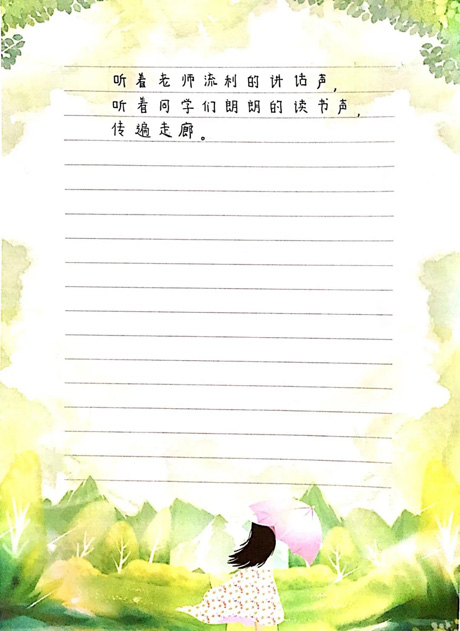 听着老师流利的讲话声，
听着同学们朗朗的读书声，
传遍走廊。